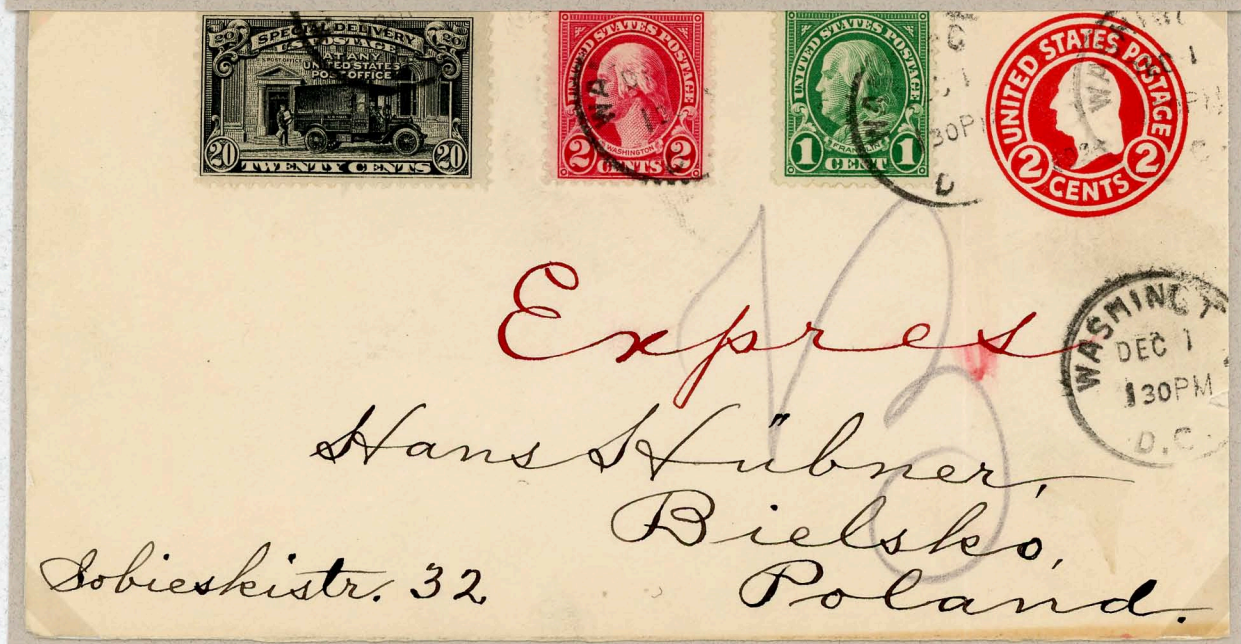 SPECIAL DELIVERY
U.S. POSTAGE
AT ANY
UNITED STATES
POST OFFICE
U.S. POST OFFICE
20 TWENTY CENTS 20
UNITED STATES POSTAGE
WASHINGTON
2 CENTS 2
UNITED STATES POSTAGE
FRANKLIN
1 CENT 1
UNITED STATES POSTAGE
2 CENTS 2
Expres
WASHINGT
DEC 1
130PM
D.C.
Hans Hübner,
Bielsko,
Sobieskistr. 32
Poland.